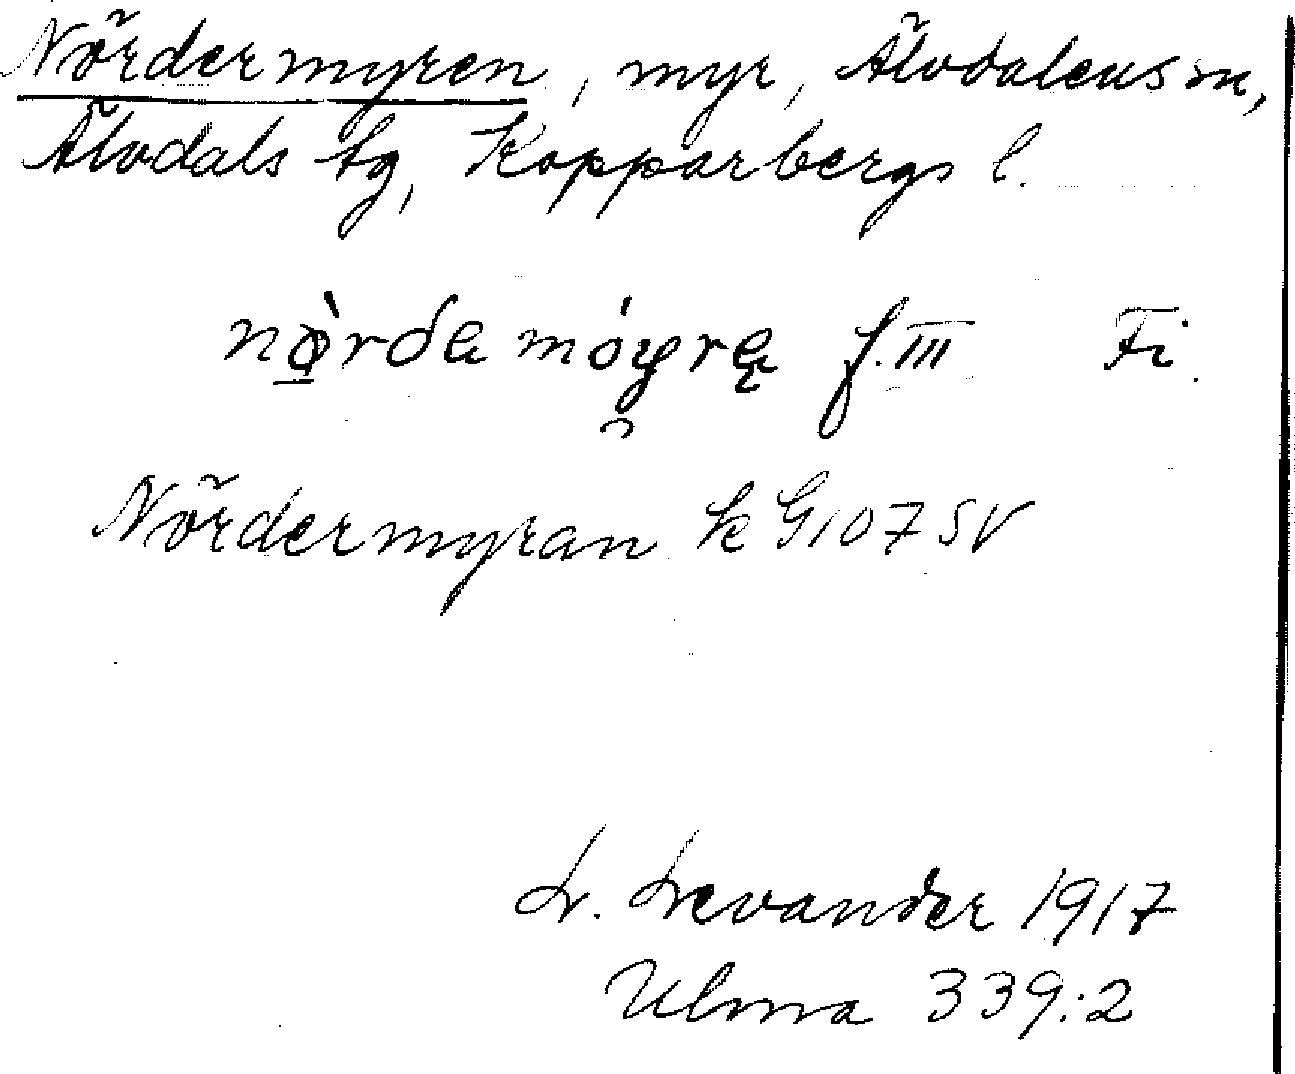 Nördermyren, myr, Älvdalens sn,
Älvdals tg, Kopparbergs l.
nø̱̀rda móyrę f. III Fi.
Nördermyran k G107 SV
L. Levander 1917
Ulma 339:2